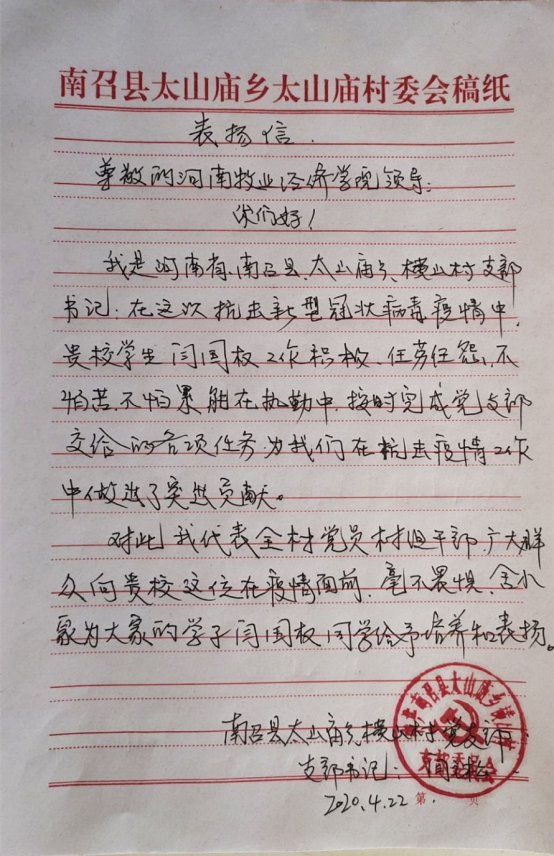 南召县太山庙乡太山庙村委会稿纸
表扬信.
尊敬的河南牧业经济学院领导:
你们好!
我是河南省、南召县、太山庙乡、横山村支部
书记.在这次抗击新型冠状病毒疫情中,
贵校学生闫国权工作积极、任劳任怨,不
怕苦、不怕累,能在执勤中,按时完成党支部
交给的各项任务,为我们在抗击疫情工作
中做出了突出贡献。
对此我代表全村党员村组干部、广大群
众向贵校这位在疫情面前,毫不畏惧、舍小
家为大家的学子闫国权同学给予培养和表扬。
南召县太山庙乡横山村党支部
支部书记:
2020.4.22
第 页
南召县太山庙乡横山村
支部委员会